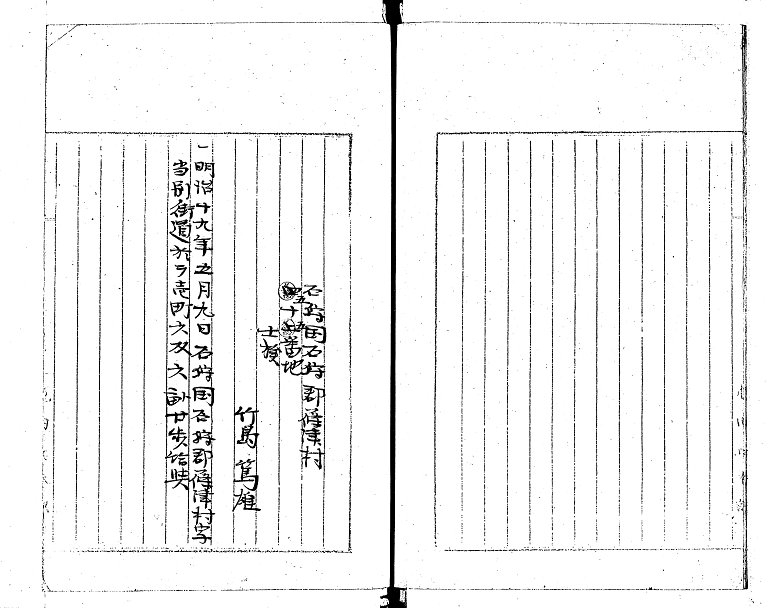 石狩国石狩郡篠津村
五十五番地
士族
竹島篤雄
一明治十九年五月九日石狩国石狩郡篠津村字
当別街道於テ壱町六反六畝廿歩給与